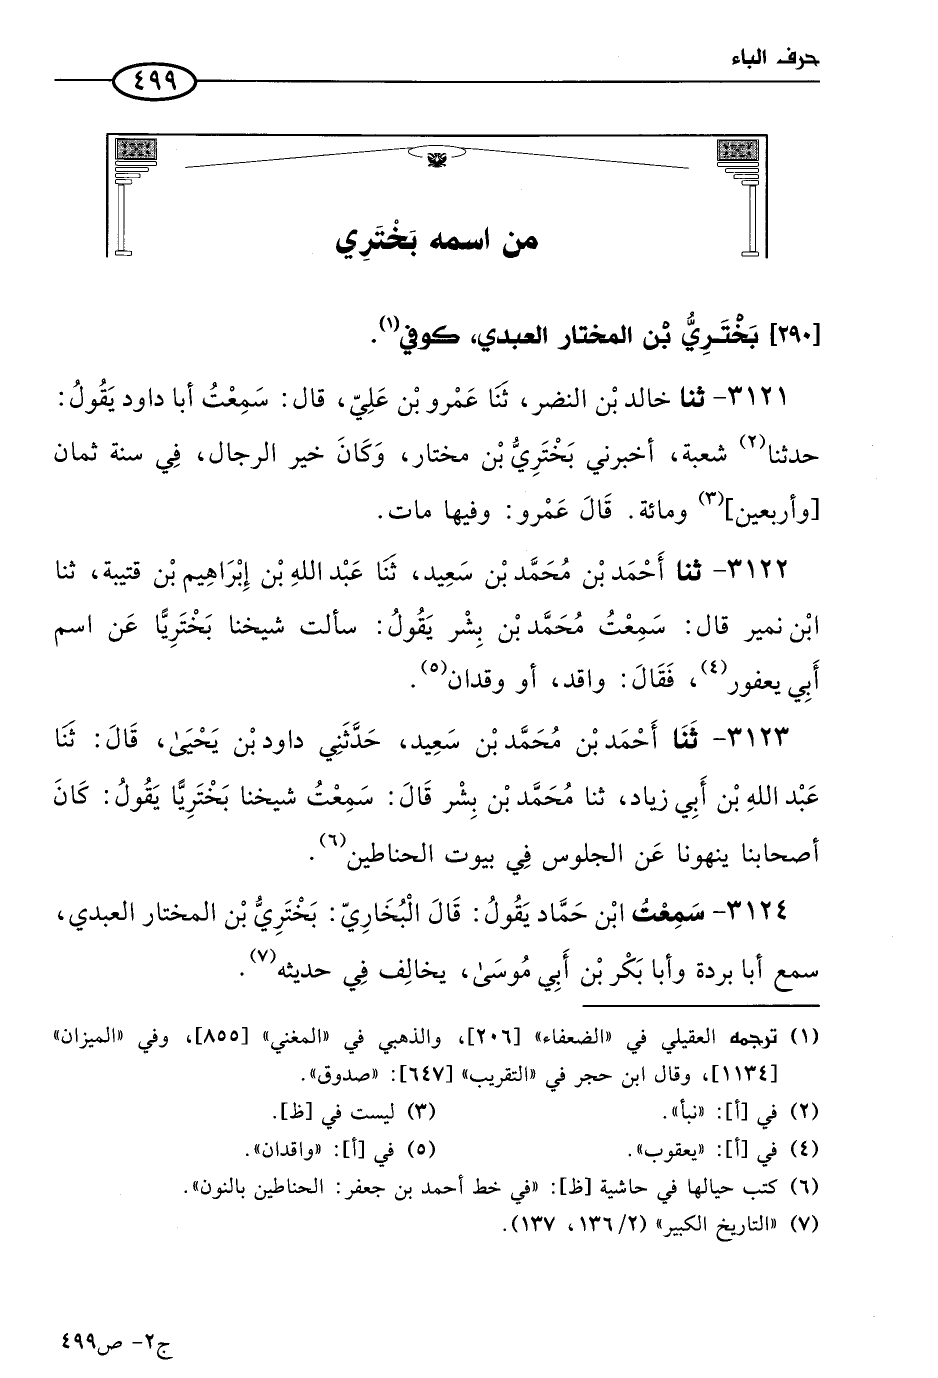 حرف الباء
٤٩٩
من اسمه بَخْتَرِي
[٢٩٠] بَخْتَـرِيُّ بْن المختار العبدي، كوفي(١).
٣١٢١- ثنا خالد بْن النضر، ثَنَا عَمْرو بْن عَلِيّ، قال: سَمِعْتُ أبا داود يَقُولُ:
حدثنا(٢) شعبة، أخبرني بَخْتَرِيُّ بْن مختار، وَكَانَ خير الرجال، فِي سنة ثمان
[وأربعين](٣) ومائة. قَالَ عَمْرو: وفيها مات.
٣١٢٢- ثنا أَحْمَد بْن مُحَمَّد بْن سَعِيد، ثَنَا عَبْد اللهِ بْن إِبْرَاهِيم بْن قتيبة، ثنا
ابْن نمير قال: سَمِعْتُ مُحَمَّد بْن بِشْر يَقُولُ: سألت شيخنا بَخْتَرِيًّا عَن اسم
أَبِي يعفور(٤)، فَقَالَ: واقد، أو وقدان(٥).
٣١٢٣- ثَنَا أَحْمَد بْن مُحَمَّد بْن سَعِيد، حَدَّثَنِي داود بْن يَحْيَىٰ، قَالَ: ثَنَا
عَبْد اللهِ بْن أَبِي زياد، ثنا مُحَمَّد بْن بِشْر قَالَ: سَمِعْتُ شيخنا بَخْتَرِيًّا يَقُولُ: كَانَ
أصحابنا ينهونا عَن الجلوس فِي بيوت الحناطين(٦).
٣١٢٤- سَمِعْتُ ابْن حَمَّاد يَقُولُ: قَالَ الْبُخَارِيّ: بَخْتَرِيُّ بْن المختار العبدي،
سمع أبا بردة وأبا بَكْر بْن أَبِي مُوسَىٰ، يخالِف فِي حديثه(٧).
(١) ترجمه العقيلي في «الضعفاء» [٢٠٦]، والذهبي في «المغني» [٨٥٥]، وفي «الميزان»
[١١٣٤]، وقال ابن حجر في «التقريب» [٦٤٧]: «صدوق».
(٢) في [أ]: «نبأ». (٣) ليست في [ظ].
(٤) في [أ]: «يعقوب». (٥) في [أ]: «واقدان».
(٦) كتب حيالها في حاشية [ظ]: «في خط أحمد بن جعفر: الحناطين بالنون».
(٧) «التاريخ الكبير» (٢/ ١٣٦، ١٣٧).
ج٢- ص٤٩٩